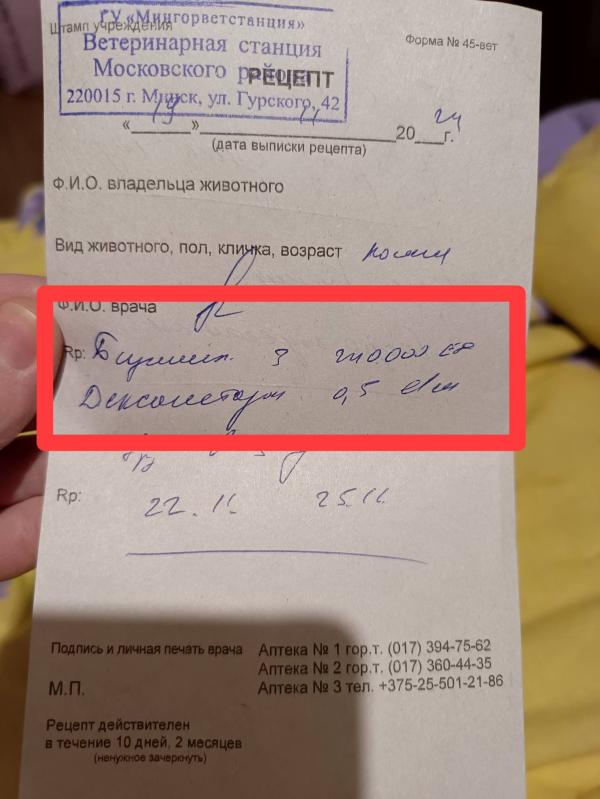 Штамп учреждения
ГУ «Мингорветстанция»
Форма № 45-вет
Ветеринарная станция
Московского района
РЕЦЕПТ
220015 г. Минск, ул. Гурского, 42
«19» 11 2024 г.
(дата выписки рецепта)
Ф.И.О. владельца животного
Вид животного, пол, кличка, возраст
Ф.И.О. врача
Rp: Бициллин 3
Дексаметазон 0,5
Rp:
22.11. 25.11.
Подпись и личная печать врача
Аптека № 1 гор.т. (017) 394-75-62
Аптека № 2 гор.т. (017) 360-44-35
М.П.
Аптека № 3 тел. +375-25-501-21-86
Рецепт действителен
в течение 10 дней, 2 месяцев
(ненужное зачеркнуть)